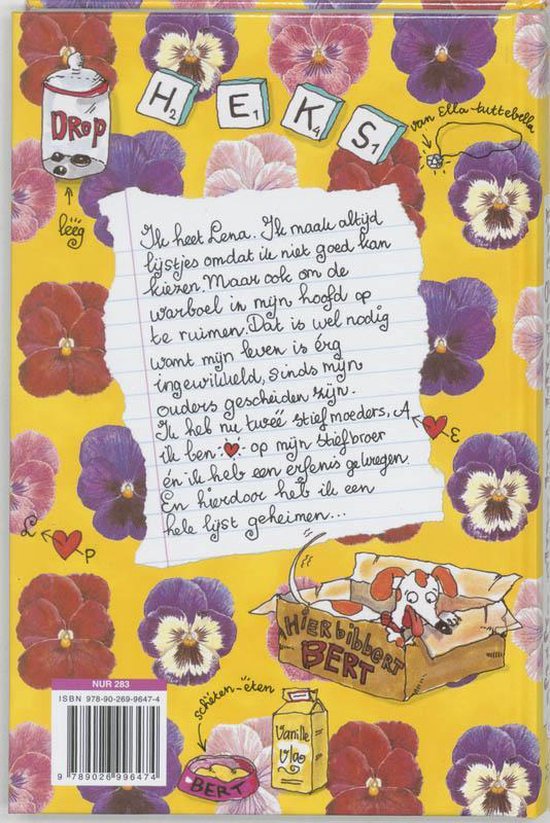 DROP
leeg
H2 E1 K4 S1
van Ella-tuttebella
Ik heet Lena. Ik maak altijd
lijstjes omdat ik niet goed kan
kiezen. Maar ook om de
warboel in mijn hoofd op
te ruimen. Dat is wel nodig
want mijn leven is érg
ingewikkeld, sinds mijn
ouders gescheiden zijn.
Ik heb nu twéé stiefmoeders,
ik ben ♥ op mijn stiefbroer
én ik heb een erfenis gekregen.
En hierdoor heb ik een
hele lijst geheimen...
A ♥ E
L ♥ P
HIER bibbert
BERT
NUR 283
ISBN 978-90-269-9647-4
9 789026 996474
scheten-eten
BERT
Vanille
Vla